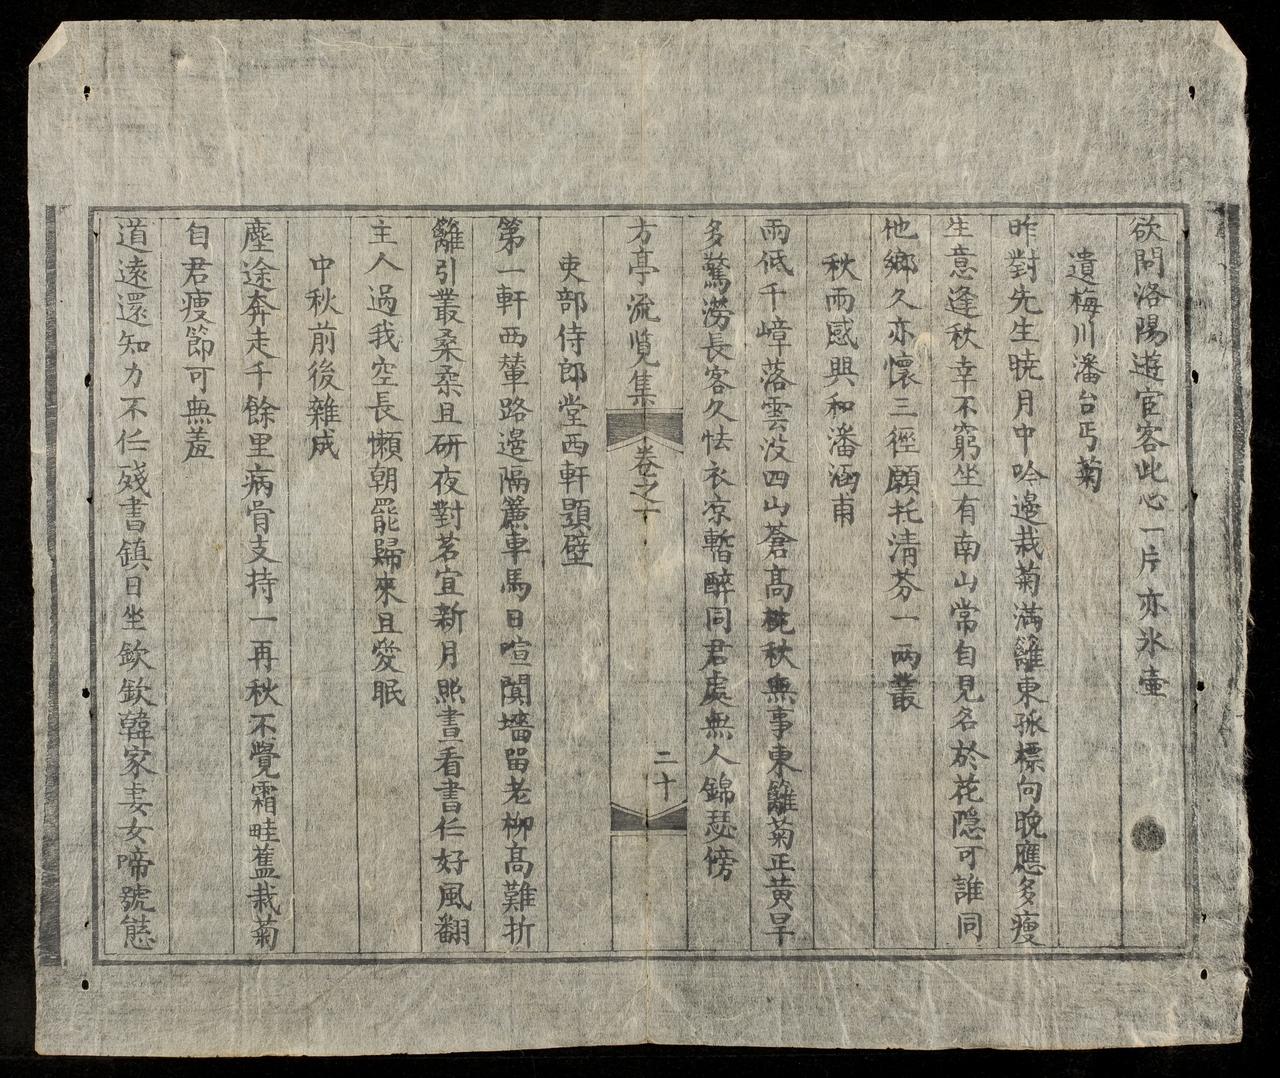 欲問洛陽遊宦客此心一片亦氷壷
遺梅川潘台丐菊
昨對先生暁月中吟邊栽菊滿籬東孤標向晚應多瘦
生意逢秋幸不窮坐有南山常自見名於花隠可誰同
他鄉久亦懷三徑願托清芬一两叢
秋雨感興和潘涵甫
雨低千嶂落雲没四山蒼髙梡秋無事東籬菊正黄早
多驚澇長客久怯衣凉暫醉同君處無人錦瑟傍
方亭流覧集
卷之一
二十
吏部侍郎堂西軒題壁
第一軒西輦路邊隔簾車馬日喧闐墻留老柳髙難折
籬引叢桑柔且研夜對茗宜新月照晝看書仁好風翻
主人過我空長懶朝罷歸來且愛眠
中秋前後雜成
塵途奔走千餘里病骨支持一再秋不覺霜畦舊栽菊
自君瘦節可無羞
道遠還知力不仁殘書鎮日坐欽欽韓家妻女啼號慈